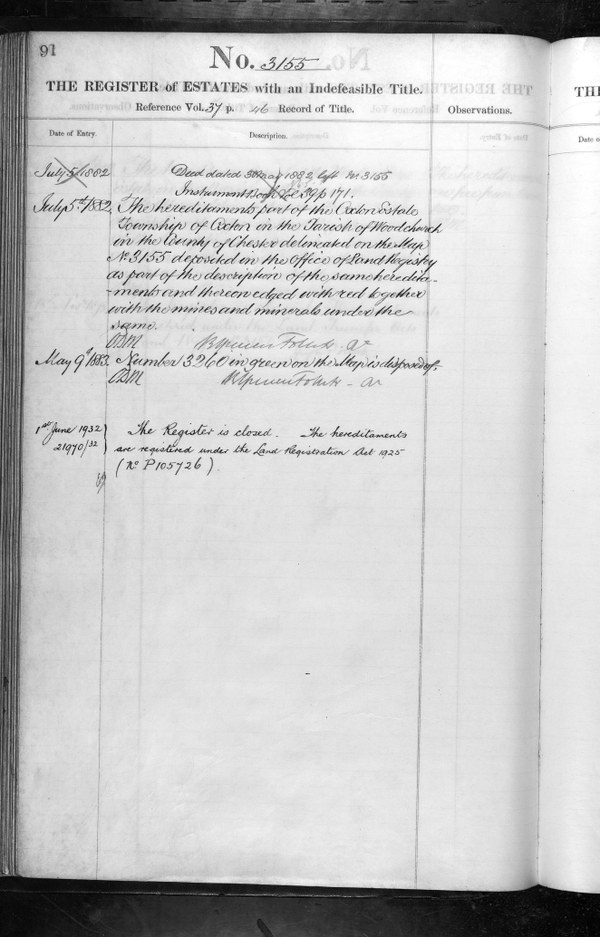 91
No. 3155
THE REGISTER of ESTATES with an Indefeasible Title.
Reference Vol. 37 p. 46 Record of Title.
Observations.
Date of Entry.
Description.
July 5th 1882
Deed dated May 1882 left in 3155
Instrument Book Vol 39 p 171.
July 5th 1882
The hereditaments part of the Oxton Estate
Township of Oxton in the Parish of Woodchurch
in the County of Chester delineated on the Map
No 3155 deposited in the Office of Land Registry
as part of the description of the same heredita-
-ments and thereon edged with red together
with the mines and minerals under the
same.
May 9th 1883.
Number 3260 in green on the Map is disposed of.
1st June 1932
21970/32
The Register is closed. The hereditaments
are registered under the Land Registration Act 1925
(No P105726).
THE
Date o